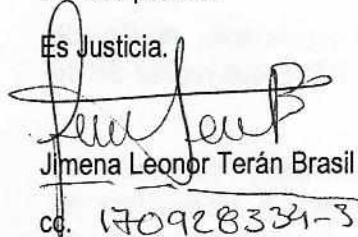 Es Justicia.
Jimena Leonor Terán Brasil
cc. 170928334-3